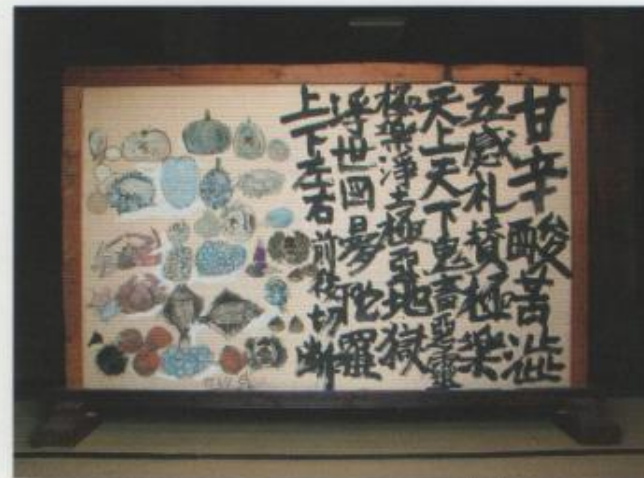 甘辛酸苦渋
五感礼賛極楽
天上天下鬼畜悪霊
極楽浄土極悪地獄
浮世回曼陀羅
上下左右前後切断